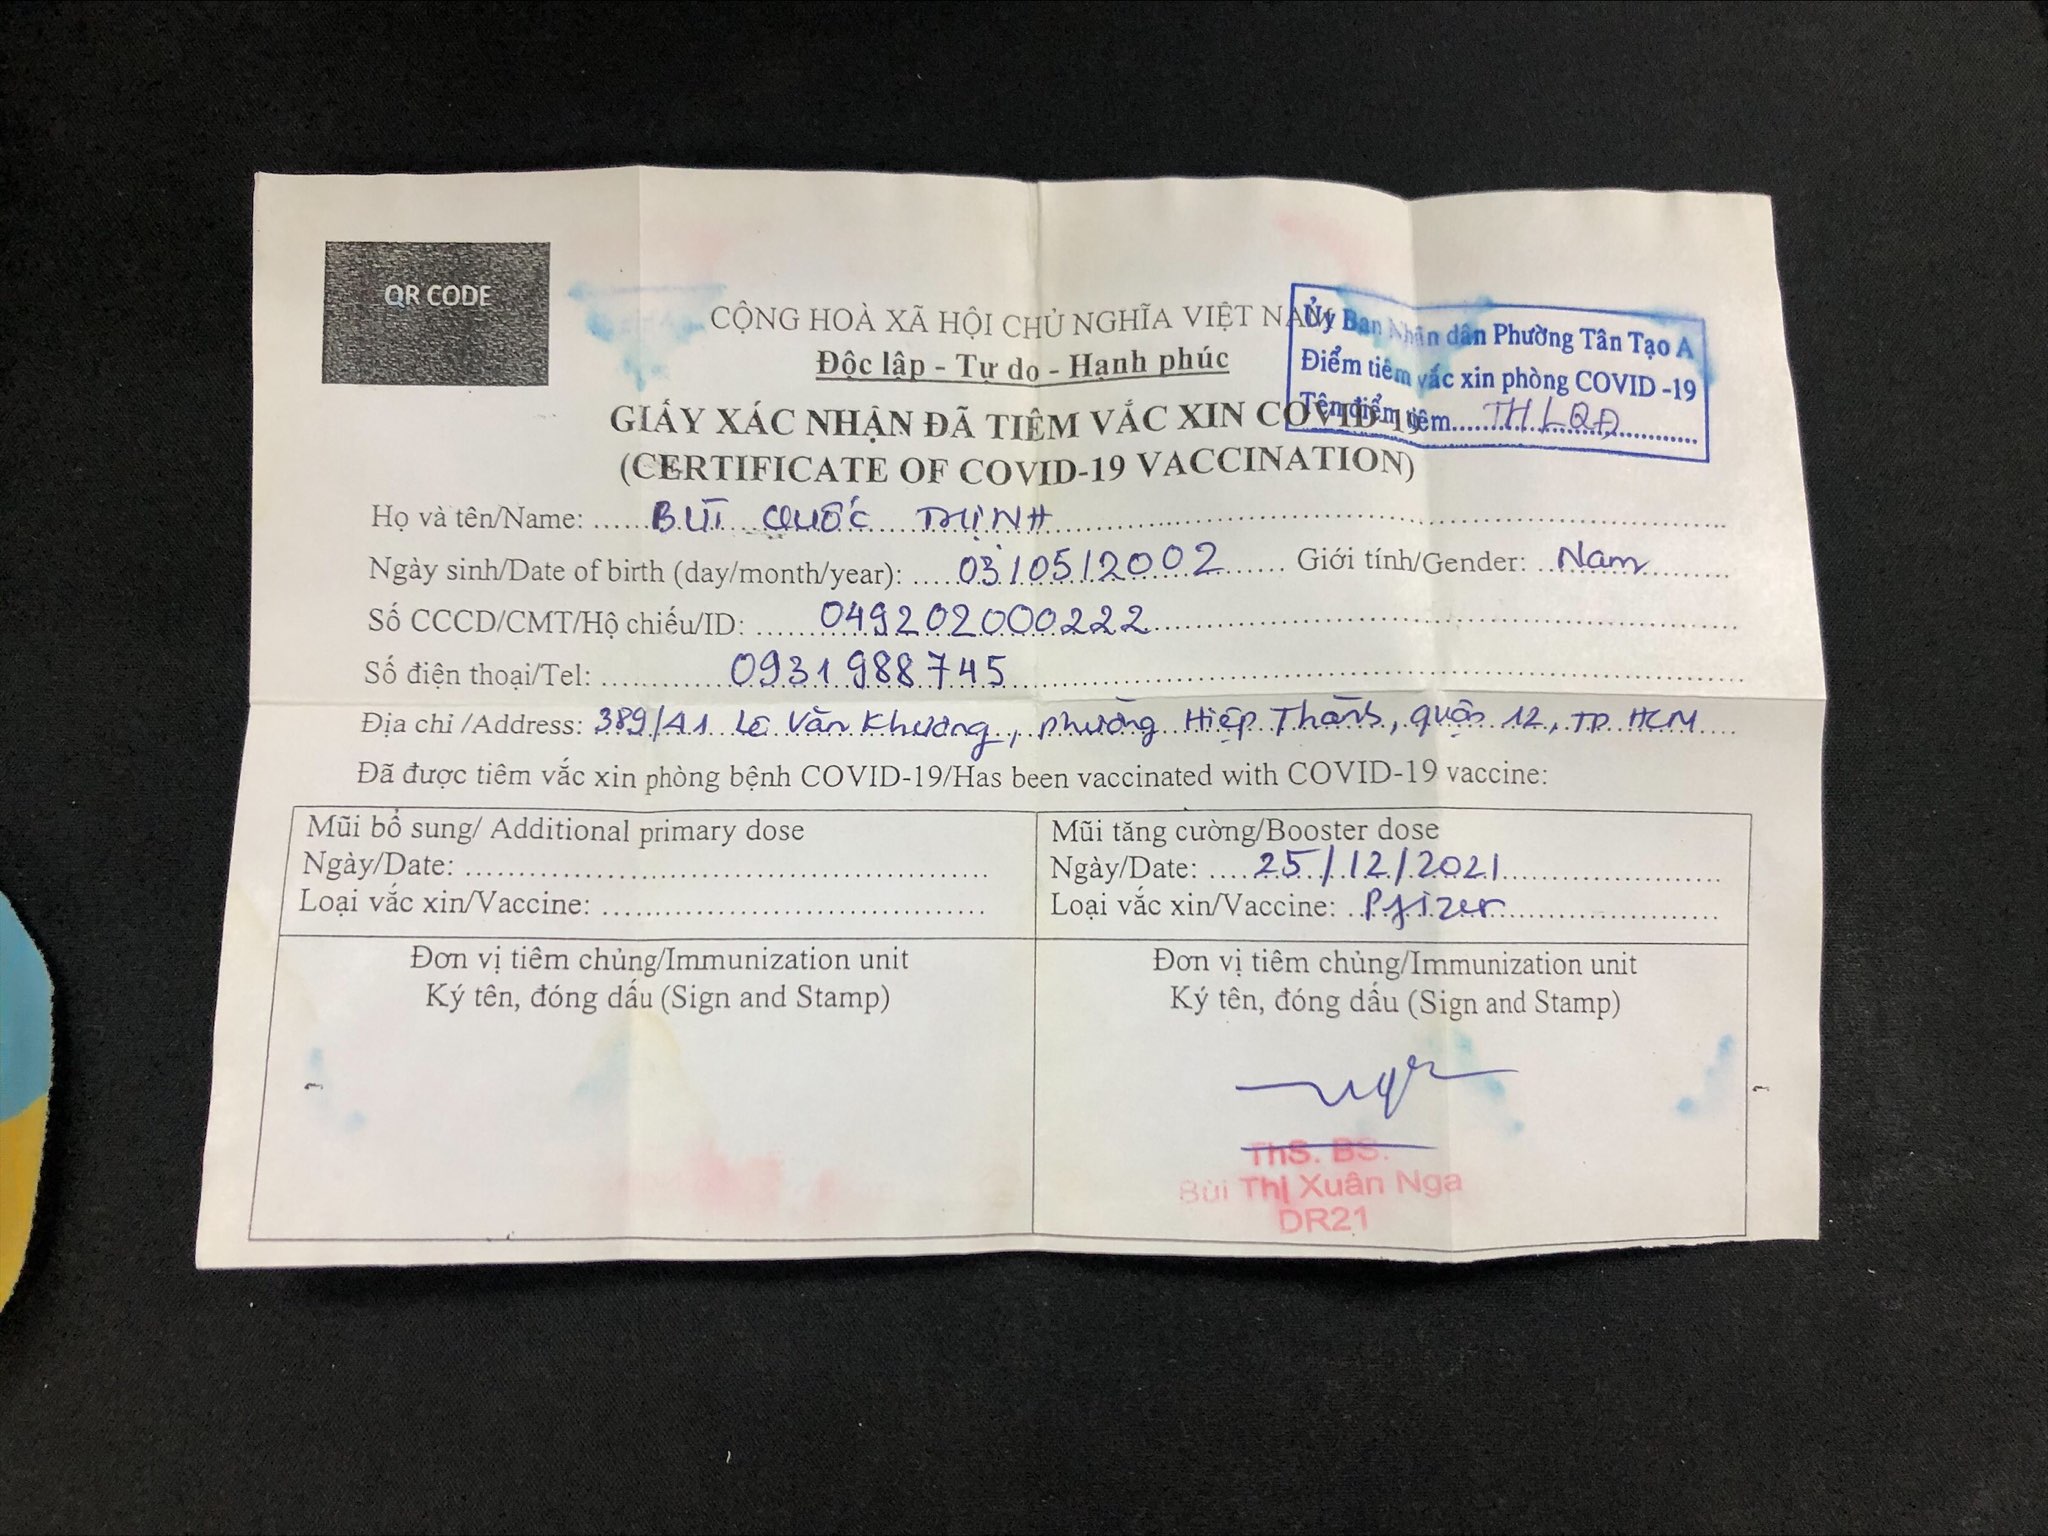 QR CODE
CỘNG HOÀ XÃ HỘI CHỦ NGHĨA VIỆT NAM
Độc lập - Tự do - Hạnh phúc
Ủy Ban Nhân dân Phường Tân Tạo A
Điểm tiêm vắc xin phòng COVID -19
Tên điểm tiêm.....TH LQĐ.....
GIẤY XÁC NHẬN ĐÃ TIÊM VẮC XIN COVID-19
(CERTIFICATE OF COVID-19 VACCINATION)
Họ và tên/Name: ......BÙI QUỐC THỊNH......
Ngày sinh/Date of birth (day/month/year): ....03/05/2002...... Giới tính/Gender: ..Nam......
Số CCCD/CMT/Hộ chiếu/ID: ......049202000222......
Số điện thoại/Tel: ......0931988745......
Địa chỉ /Address: 389/A1 Lê Văn Khương, phường Hiệp Thành, quận 12, TP HCM....
Đã được tiêm vắc xin phòng bệnh COVID-19/Has been vaccinated with COVID-19 vaccine:
Mũi bổ sung/ Additional primary dose
Ngày/Date: ......
Loại vắc xin/Vaccine: ......
Đơn vị tiêm chủng/Immunization unit
Ký tên, đóng dấu (Sign and Stamp)
Mũi tăng cường/Booster dose
Ngày/Date: ....25/12/2021......
Loại vắc xin/Vaccine: ..Pfizer......
Đơn vị tiêm chủng/Immunization unit
Ký tên, đóng dấu (Sign and Stamp)
ThS. BS.
Bùi Thị Xuân Nga
DR21